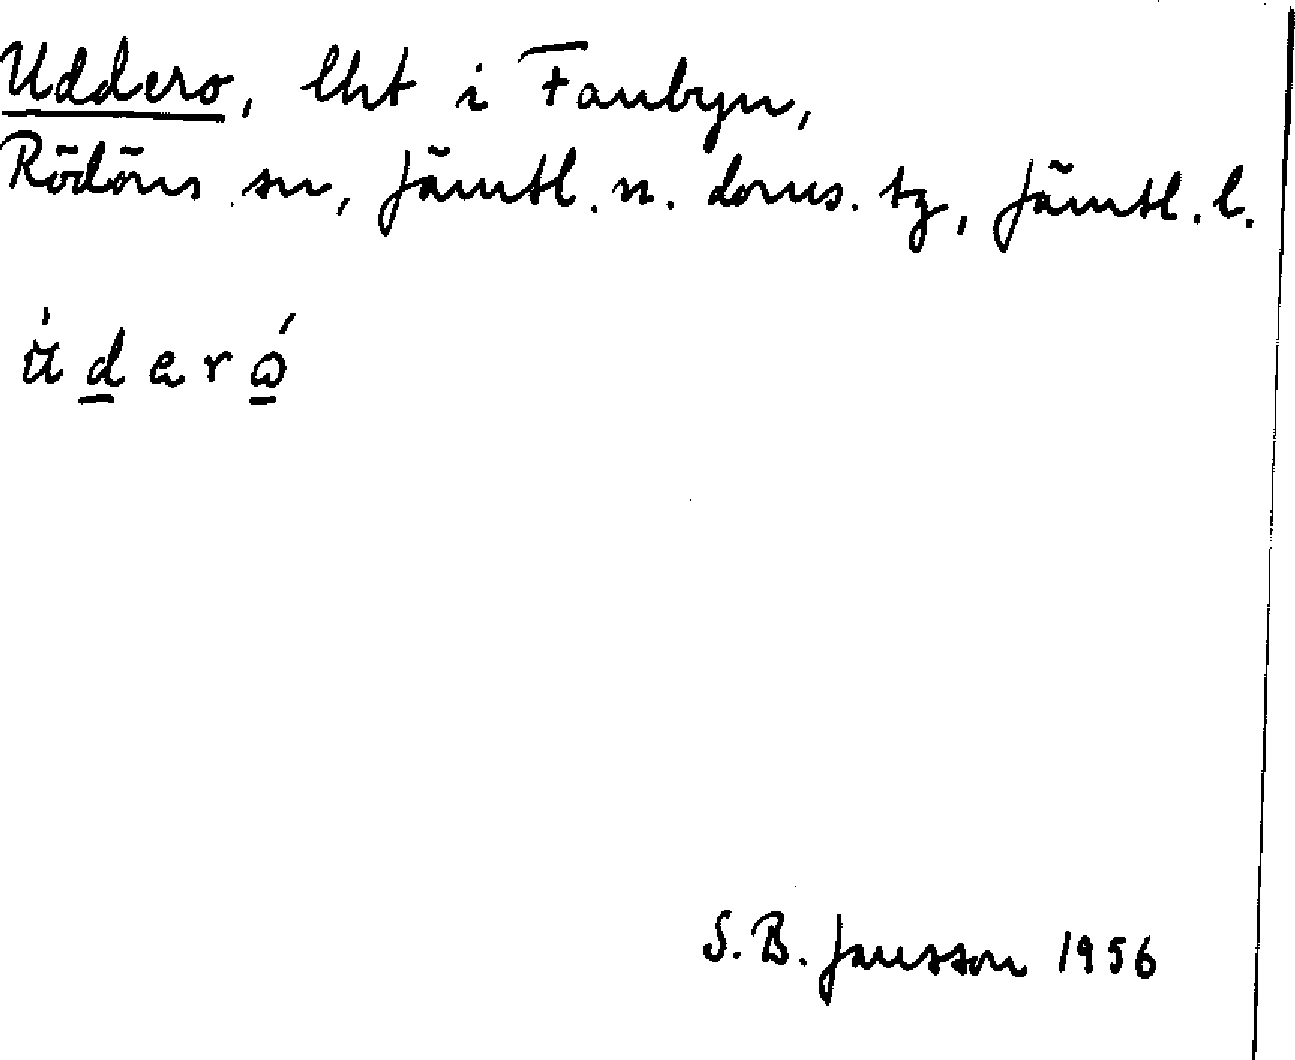 Uddero, lht i Fanbyn,
Rödöns sn, Jämtl. n. doms. tg, Jämtl. l.
ùderó
S. B. Jansson 1956